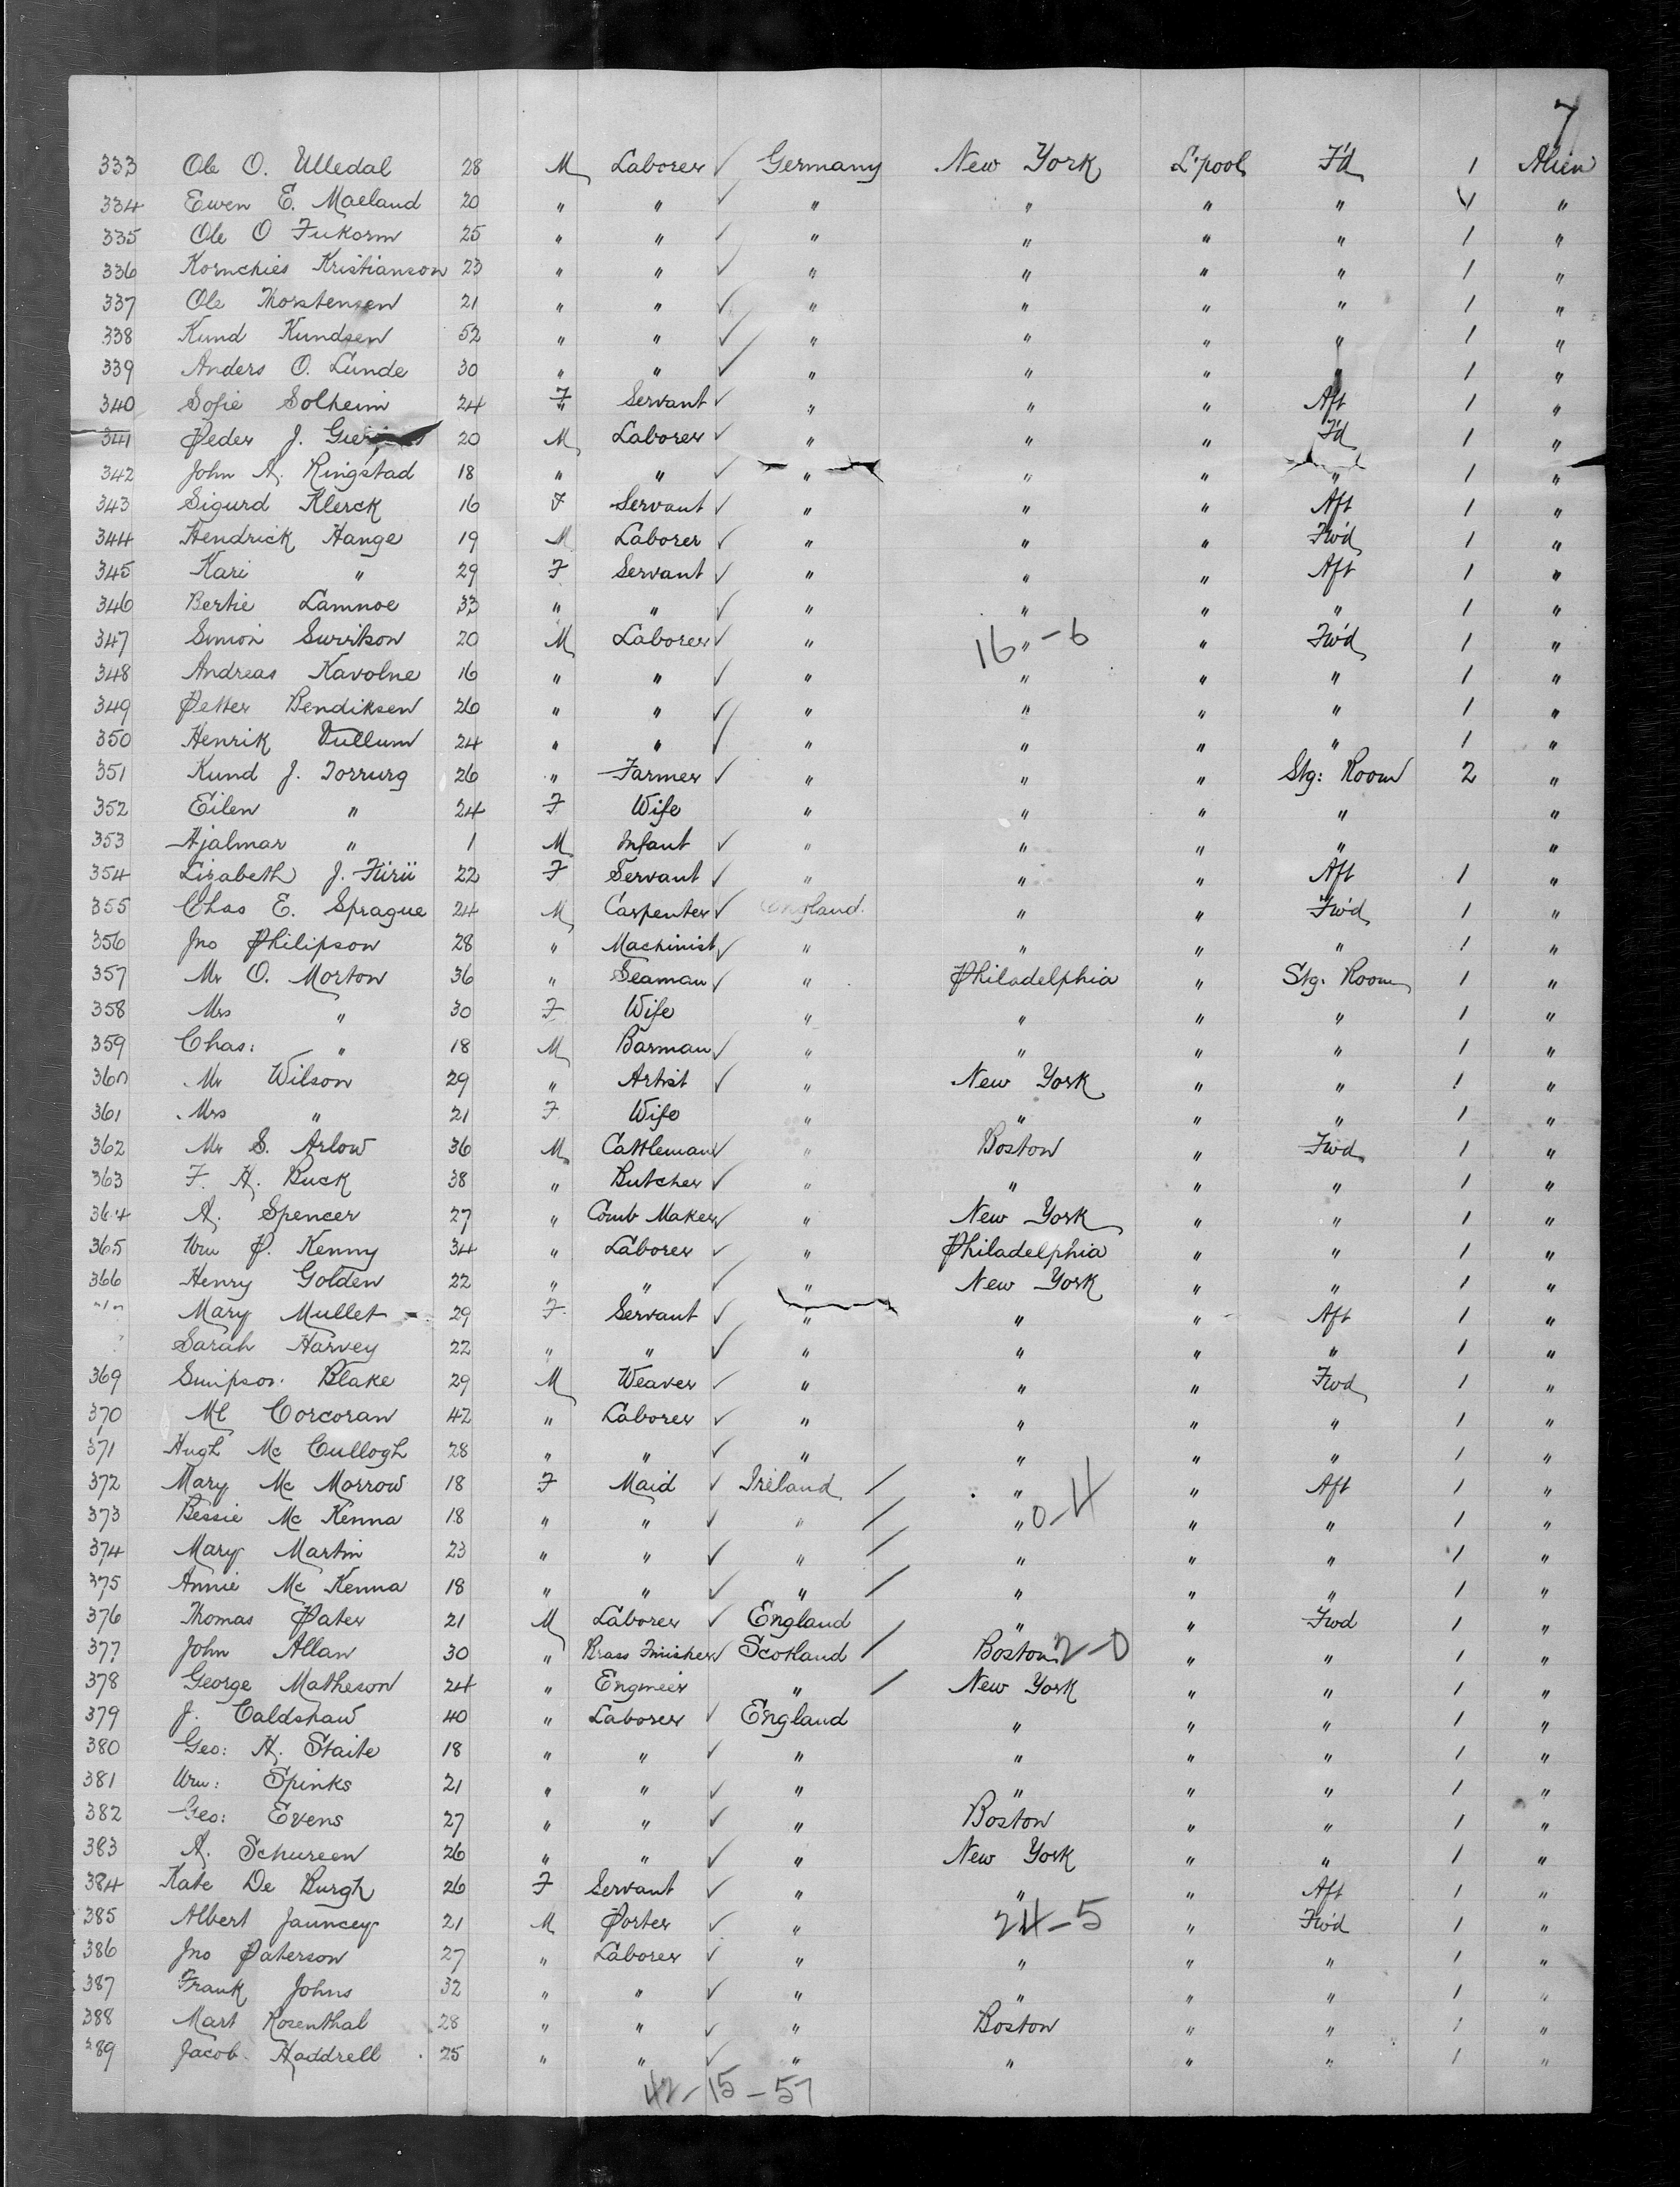 7
333 Ole O. Ulledal 28 M Laborer ✓ Germany New York L'pool F'd 1 Alien
334 Ewen E. Maeland 20 " " ✓ " " " " 1 "
335 Ole O Fukorm 25 " " ✓ " " " " 1 "
336 Kornchies Kristianson 23 " " ✓ " " " " 1 "
337 Ole Thorstensen 21 " " ✓ " " " " 1 "
338 Kund Kundsen 52 " " ✓ " " " " 1 "
339 Anders O. Lunde 30 " " ✓ " " " 1 "
340 Sofie Solheim 24 F Servant ✓ " " " Aft 1 "
341 Peder J. 20 M Laborer ✓ " " " F'd 1 "
342 John A. Ringstad 18 " " ✓ " " " " 1 "
343 Sigurd Klerck 16 F Servant ✓ " " " Aft 1 "
344 Hendrick Hange 19 M Laborer ✓ " " " Fwd 1 "
345 Kari " 29 F Servant ✓ " " " Aft 1 "
346 Bertie Lamnoe 33 " " ✓ " " " " 1 "
347 Simon Surrikson 20 M Laborer ✓ " 16 " - 6 " Fwd 1 "
348 Andreas Kavolne 16 " " ✓ " " " " 1 "
349 Petter Bendiksen 26 " " ✓ " " " " 1 "
350 Henrik Vullum 24 " " ✓ " " " " 1 "
351 Kund J. Torrurg 26 " Farmer ✓ " " " Stg: Room 2 "
352 Eilen " 24 F Wife " " " " "
353 Hjalmar " 1 M Infant ✓ " " " " "
354 Lizabeth J. Fürü 22 F Servant ✓ " " " Aft 1 "
355 Chas E. Sprague 24 M Carpenter ✓ England " " Fwd 1 "
356 Jno Philipson 28 " Machinist ✓ " " " " 1 "
357 Mr O. Morton 36 " Seaman ✓ " Philadelphia " Stg. Room 1 "
358 Mrs " 30 F Wife " " " " 1 "
359 Chas: " 18 M Barman ✓ " " " " 1 "
360 Mr Wilson 29 " Artist ✓ " New York " " 1 "
361 Mrs " 21 F Wife " " " " 1 "
362 Mr S. Arlow 36 M Cattleman ✓ " Boston " Fwd 1 "
363 F. H. Buck 38 " Butcher ✓ " " " " 1 "
364 A. Spencer 27 " Comb Maker ✓ " New York " " 1 "
365 Wm P. Kenny 34 " Laborer ✓ " Philadelphia " " 1 "
366 Henry Golden 22 " " ✓ " New York " " 1 "
Mary Mullet 29 F Servant ✓ " " " Aft 1 "
Sarah Harvey 22 " " ✓ " " " " 1 "
369 Simpson Blake 29 M Weaver ✓ " " " Fwd 1 "
370 Ml Corcoran 42 " Laborer ✓ " " " " 1 "
371 Hugh Mc Cullogh 28 " " ✓ " " " " 1 "
372 Mary Mc Morrow 18 F Maid ✓ Ireland / " " Aft 1 "
373 Bessie Mc Kenna 18 " " ✓ " / " 0-4 " " 1 "
374 Mary Martin 23 " " ✓ " / " " " 1 "
375 Annie Mc Kenna 18 " " ✓ " / " " " 1 "
376 Thomas Pater 21 M Laborer ✓ England " " Fwd 1 "
377 John Allan 30 " Brass Finisher ✓ Scotland / Boston 2-0 " " 1 "
378 George Matheson 24 " Engineer " / New York " " 1 "
379 J. Caldshaw 40 " Laborer ✓ England " " " 1 "
380 Geo: H. Staite 18 " " ✓ " " " " 1 "
381 Wm: Spinks 21 " " ✓ " " " " 1 "
382 Geo: Evens 27 " " ✓ " Boston " " 1 "
383 A. Schureen 26 " " ✓ " New York " " 1 "
384 Kate De Burgh 26 F Servant ✓ " " " Aft 1 "
385 Albert Jauncey 21 M Porter ✓ " 24-5 " Fwd 1 "
386 Jno Paterson 27 " Laborer ✓ " " " " 1 "
387 Frank Johns 32 " " ✓ " " " " 1 "
388 Mart Rosenthal 28 " " ✓ " Boston " " 1 "
389 Jacob Haddrell 25 " " ✓ " " " " 1 "
42-15-57